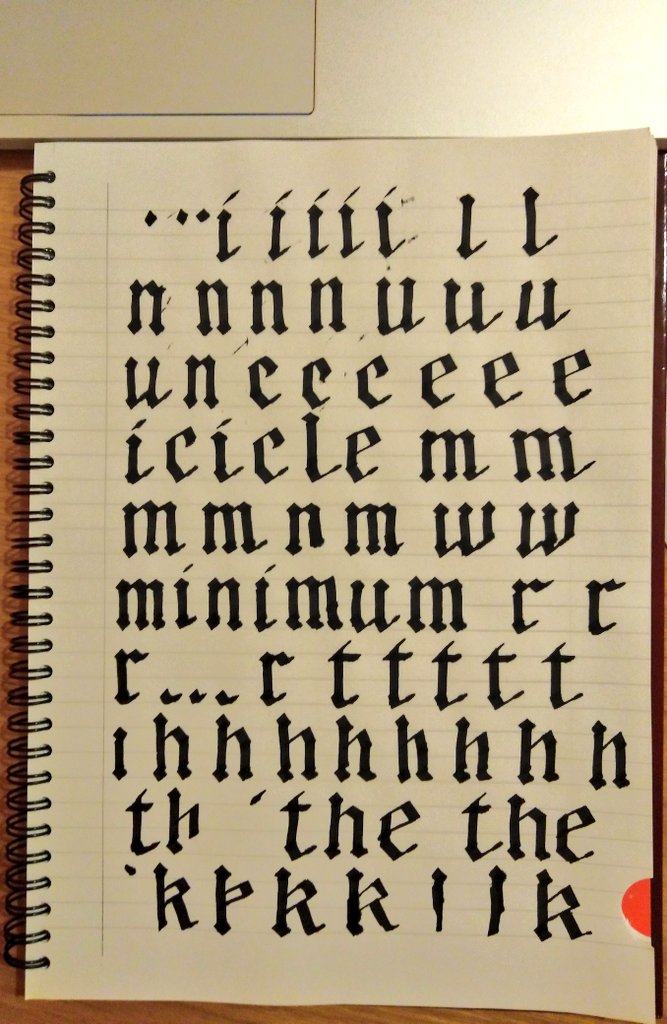 ...i i i i i l l
n n n n u u u
u n c c c e e e
icicle m m
m m n m w w
minimum r r
r ... r t t t t t
ı h h h h h h h h
th the the
k k k k k